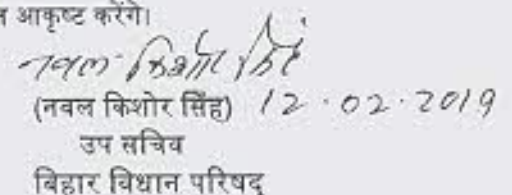 आकृष्ट करेंगे।
नवल किशोर सिंह
(नवल किशोर सिंह) 12.02.2019
उप सचिव
बिहार विधान परिषद्